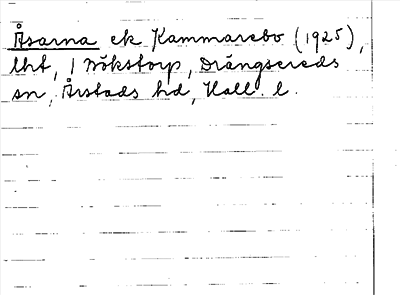 Åsarna ek Kammarebo (1925),
lht, 1 Bökstorp, Drängsereds
sn, Årstads hd, Hall. l.